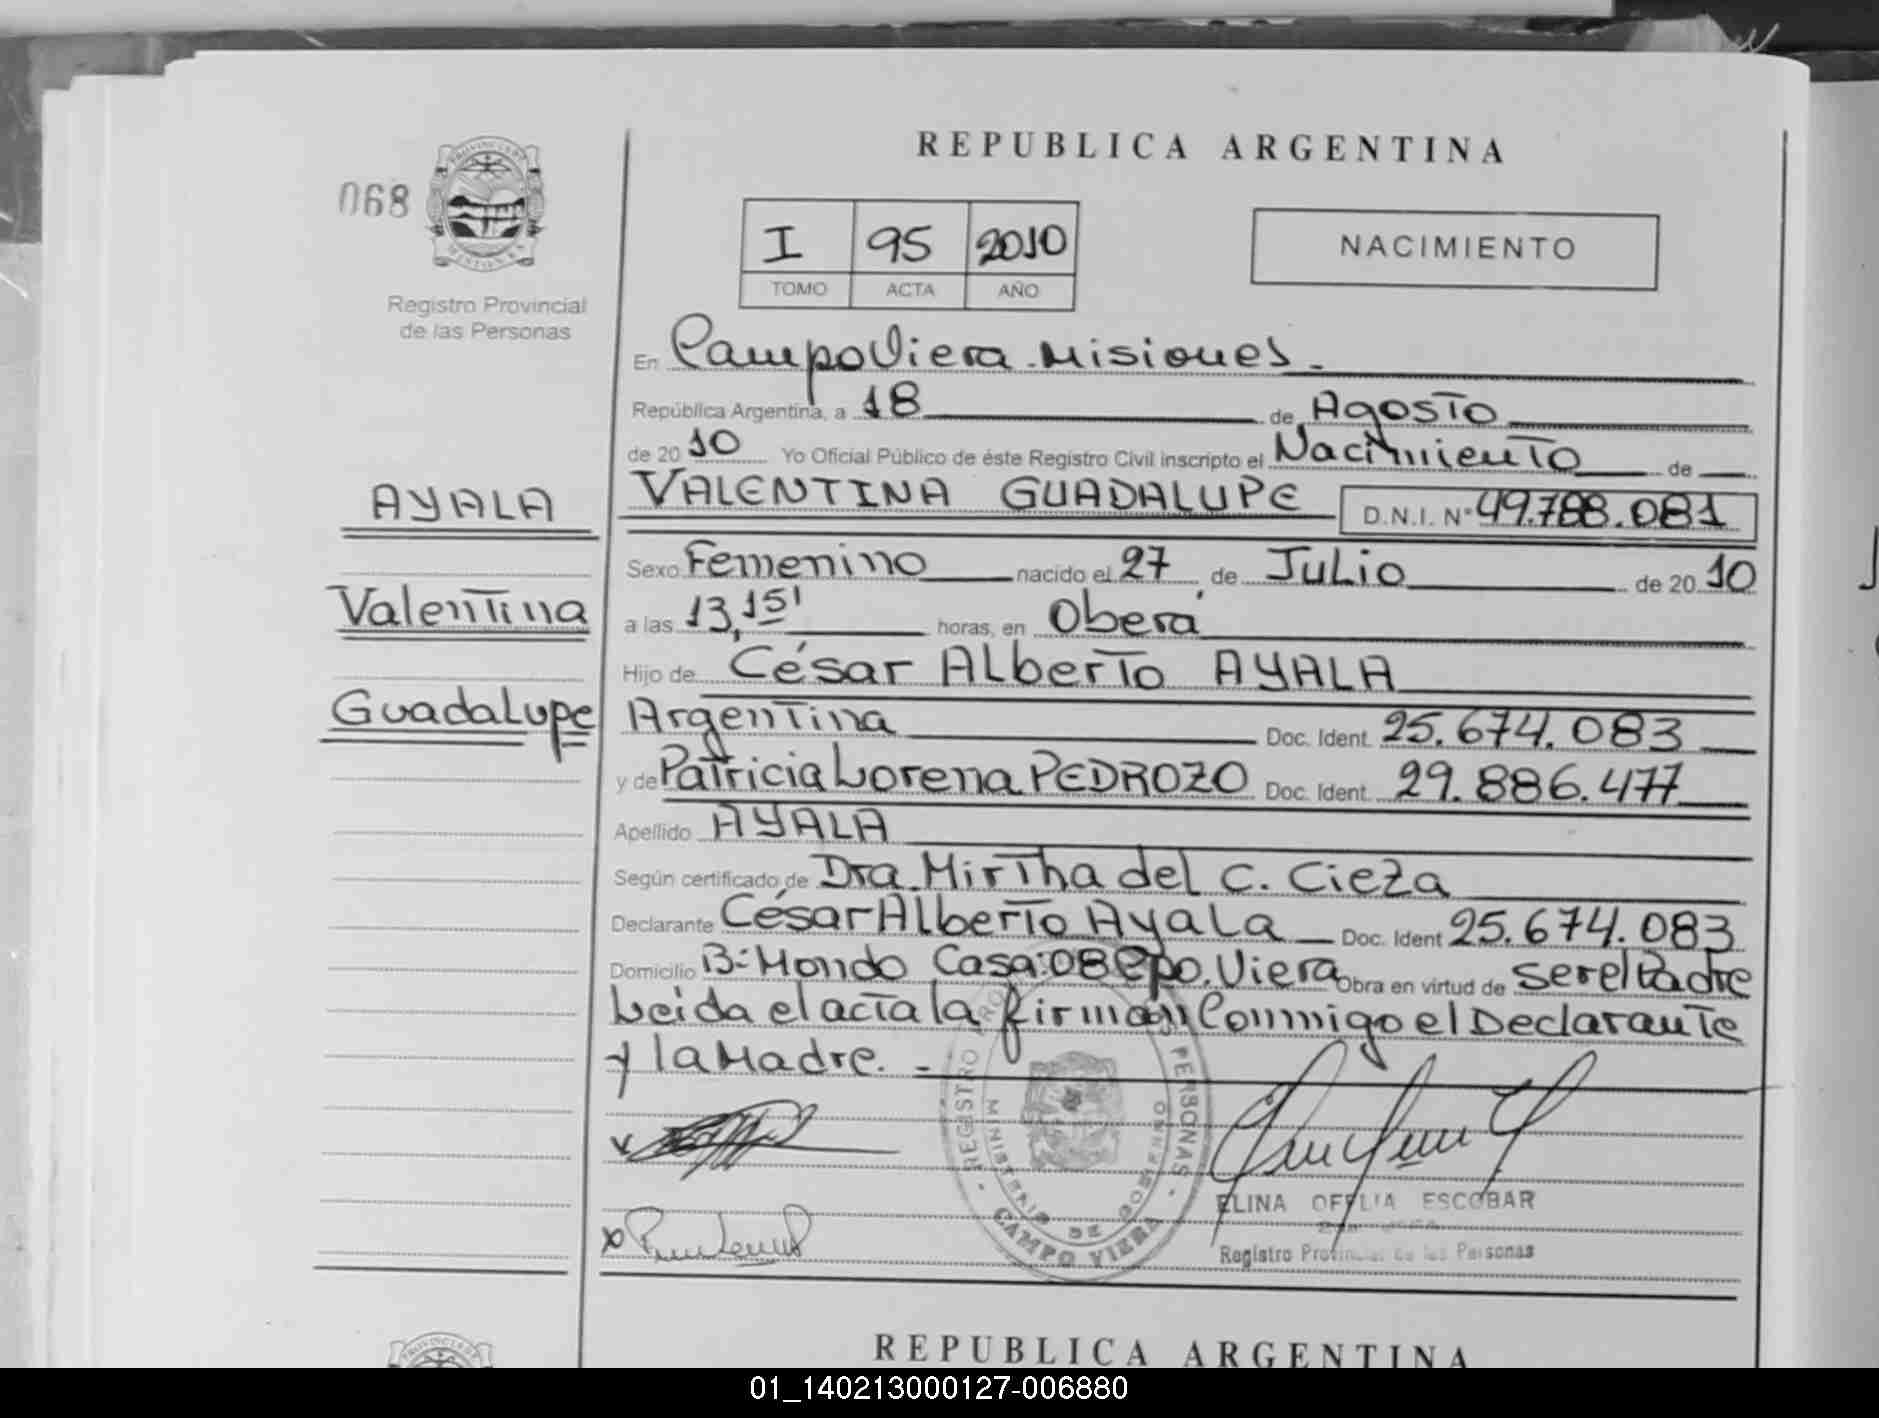 REPUBLICA ARGENTINA
068
PROVINCIA DE MISIONES
Registro Provincial
de las Personas
I 95 2010
TOMO ACTA AÑO
NACIMIENTO
En Campo Viera - Misiones.-
República Argentina, a 18 de Agosto
de 20 10 Yo Oficial Público de éste Registro Civil inscripto el Nacimiento de
AYALA
VALENTINA GUADALUPE D.N.I. N° 49.788.081
Sexo Femenino nacido el 27 de Julio de 20 10
Valentina
a las 13,15' horas, en Oberá
Hijo de César Alberto AYALA
Guadalupe
Argentina Doc. Ident. 25.674.083
y de Patricia Lorena PEDROZO Doc. Ident. 29.886.477
Apellido AYALA
Según certificado de Dra. Mirtha del C. Cieza
Declarante César Alberto Ayala Doc. Ident 25.674.083
Domicilio B: Mondo Casa: 08 Cpo. Viera Obra en virtud de ser el Padre
Leida el acta la firman Conmigo el Declarante
y la Madre. -
REGISTRO PERSONAS
MINISTERIO DE GOBIERNO
CAMPO VIERA
ELINA OFELIA ESCOBAR
Registro Provincial de las Personas
REPUBLICA ARGENTINA
01_140213000127-006880